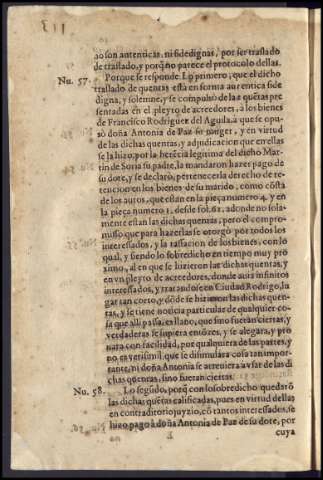 ao son autenticas, ni fidedignas, por ser traslado
de traslado, y porq̃ no parece el protocolo dellas.
Nu. 57. Porque se responde. Lo primero, que el dicho
traslado de quentas està en forma autentica fide
digna, y solemne, y se compulsò de las quẽtas pre
sentadas en el pleyto de acreedores, a los bienes
de Francisco Rodriguez del Aguila, à que se opu-
sò doña Antonia de Paz su muger, y en virtud
de las dichas quentas, y adjudicacion que en ellas
se la hizo, por la herẽcia legitima del dicho Mar-
tin de Soria su padre, la mandaron hazer pago de
su dote, y se declarò, pertenecerla derecho de re-
tencion en los bienes de su marido, como cõsta
de los autos, que estàn en la pieça numero 4. y en
la pieça numero 1. desde fol. 61. adonde no sola-
mente estàn las dichas quentas, pero el compro-
misso que para hazerlas se otorgò por todos los
interessados, y la tassacion de los bienes, con lo
qual, y siendo lo sobredicho en tiempo muy pro
ximo, al en que se hizieron las dichas quentas, y
en vn pleyto de acreedores, donde auia infinitos
interessados, y tratandose en Ciudad Rodrigo, lu
gar tan corto, y dõde se hizieron las dichas quen-
tas, y se tiene noticia particular de qualquier co-
sa que alli passa, es llano, que si no fueran ciertas, y
verdaderas se supiera entõces, y se alegara, y pro
uara con facilidad, por qualquiera de las partes, y
no es verisimil que se dissimulara cosa tan impor-
tante, ni doña Antonia se atreuiera a vsar de las di
chas quentas, si no fueran ciertas.
Nu. 58. Lo segũdo, porq̃ con lo sobredicho quedarõ
las dichas quẽtas calificadas, pues en virtud dellas
en contraditorio juyzio, cõ tantos interessados, se
hizo pago à doña Antonia de Paz de su dote, por
cuya